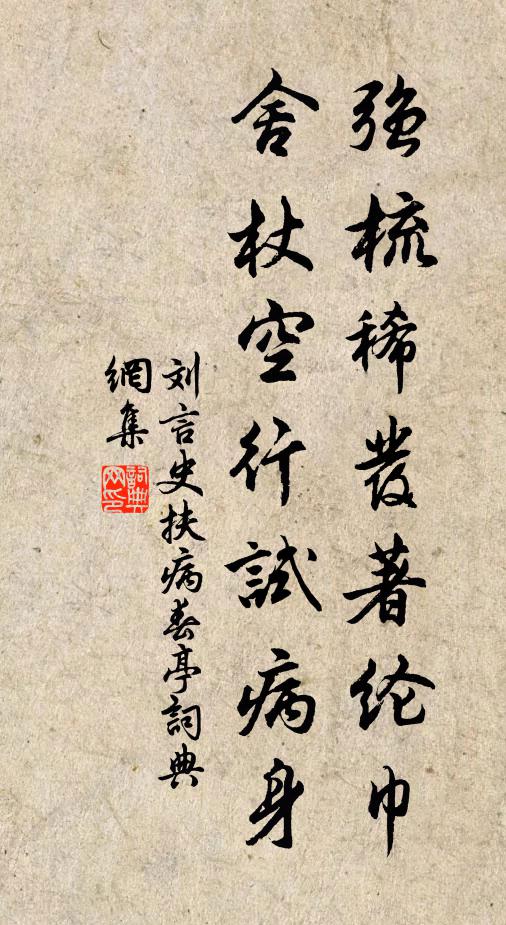 强梳稀發著纶巾
舍杖空行試病身
刘言史扶病春亭詞典
網集
詞典
网印